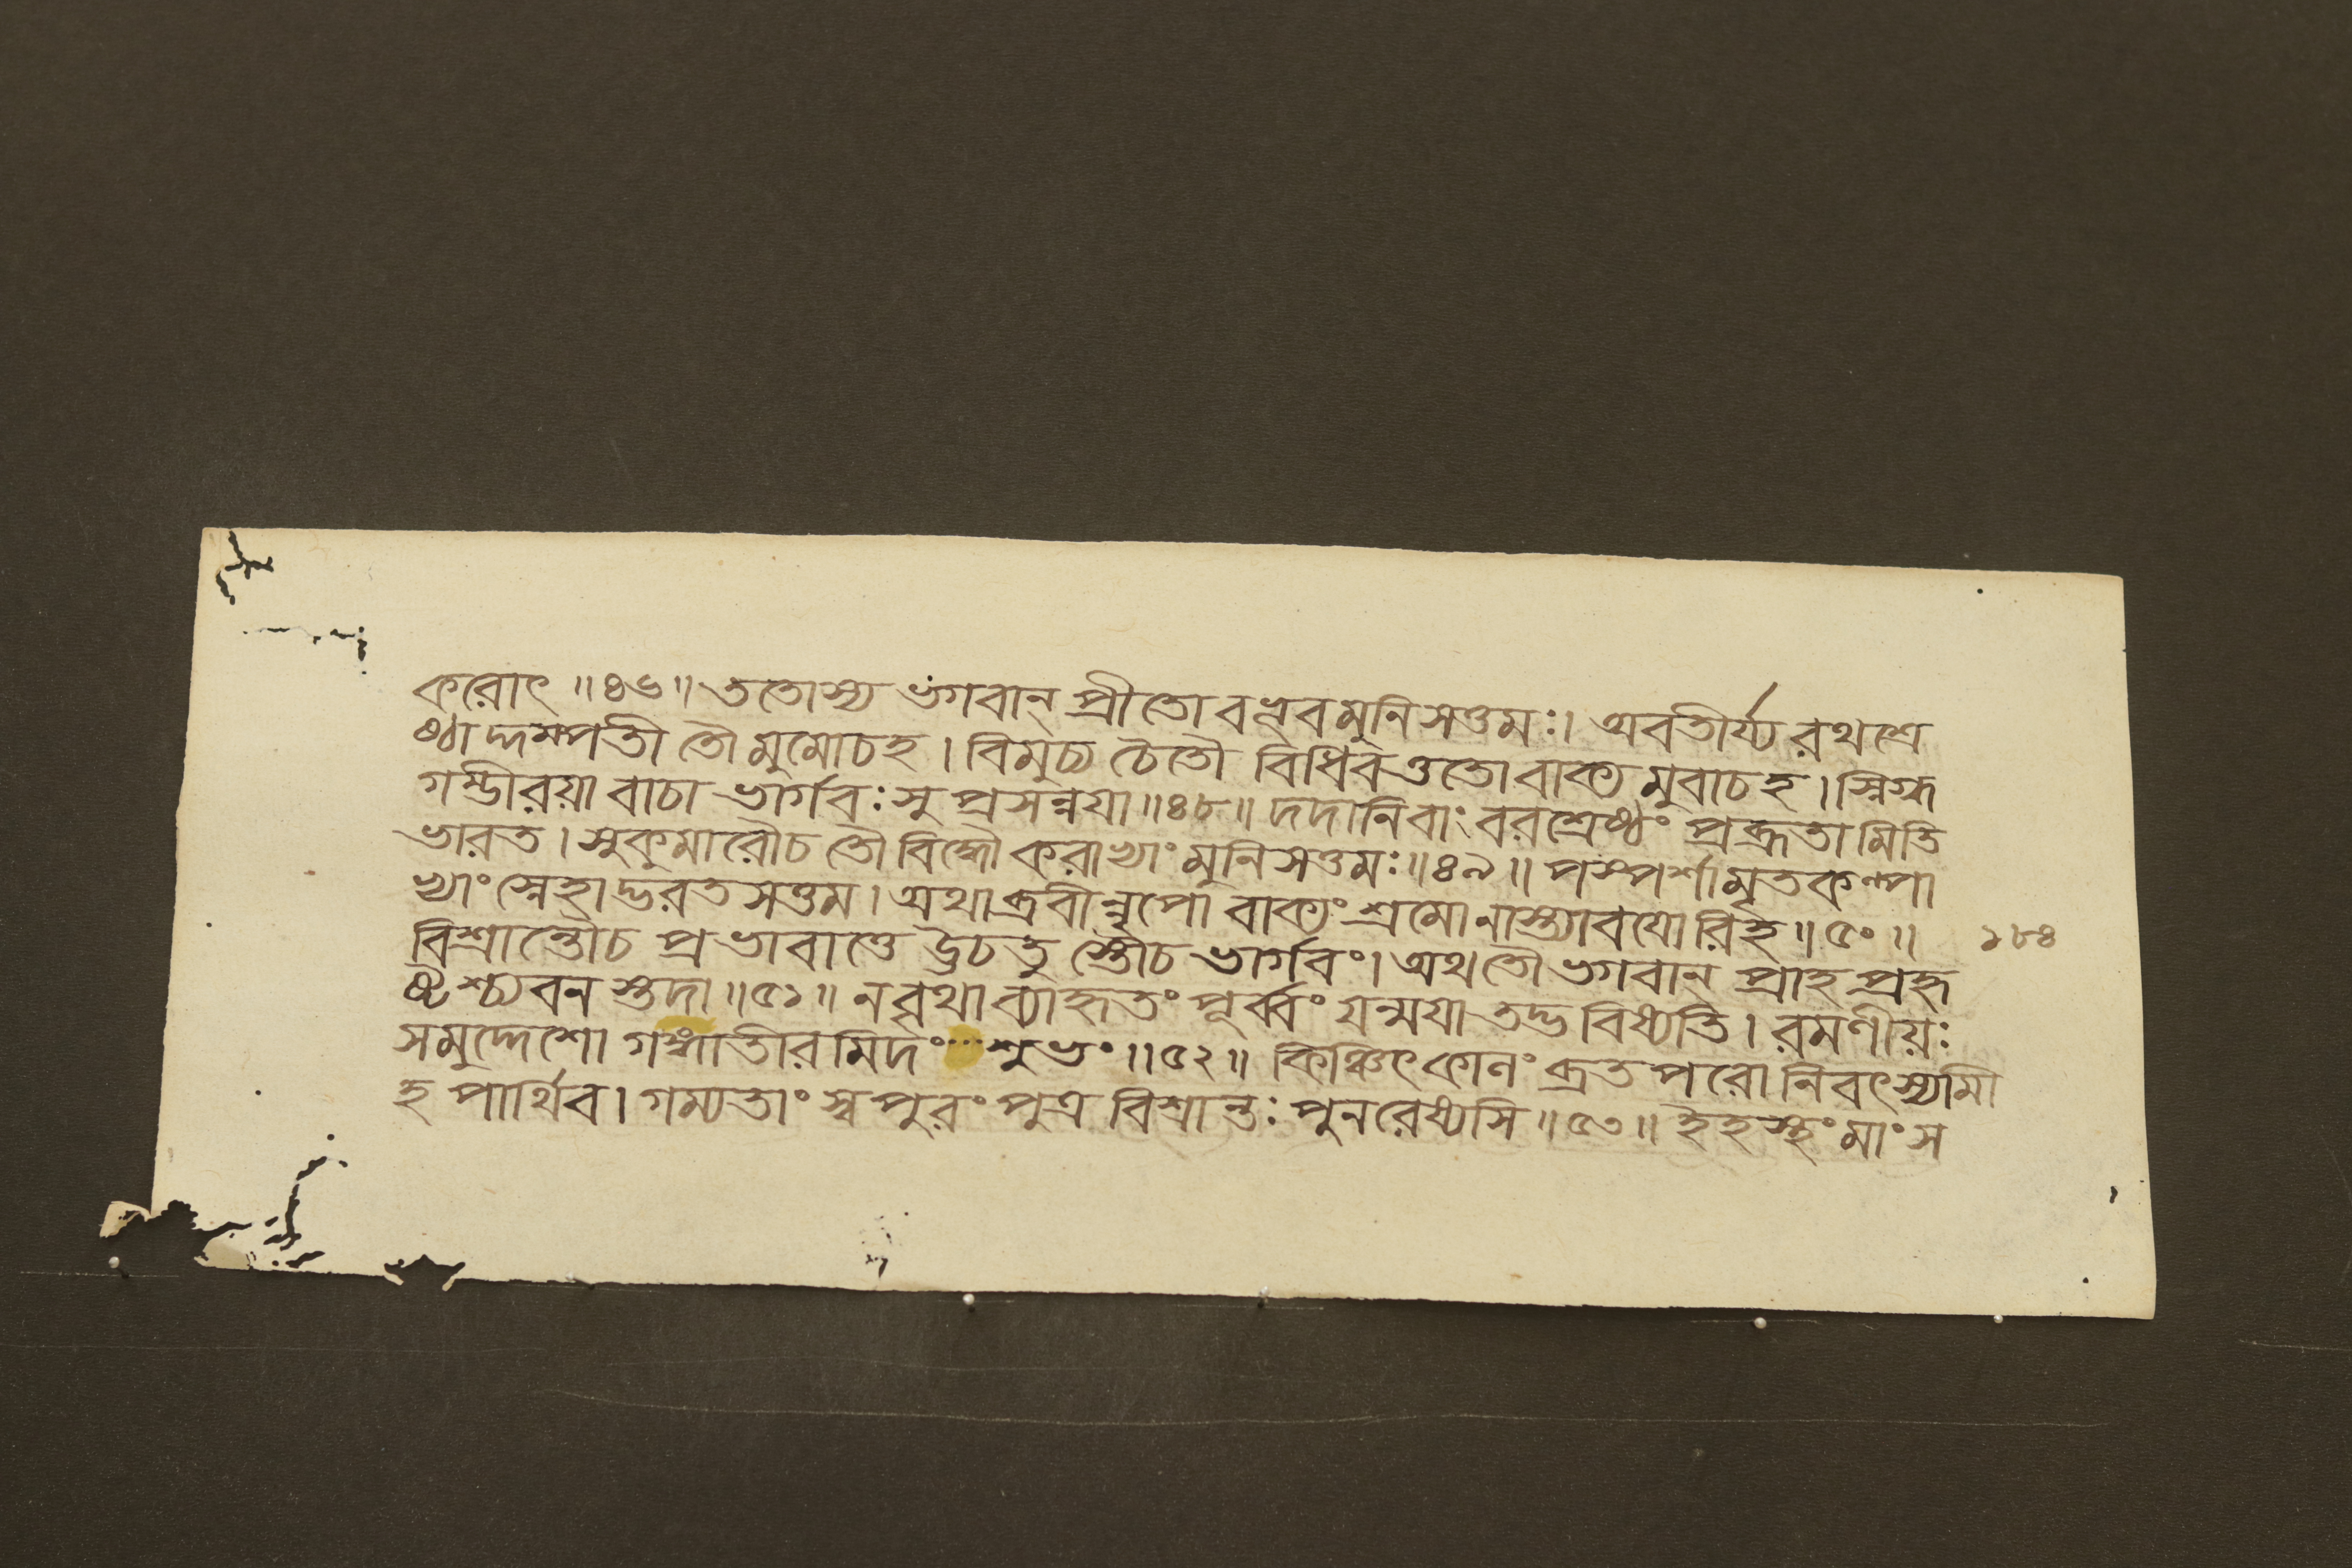 করোৎ ॥৪৬॥ ততোস্য ভগবান্ প্রীতো বভূবমুনিসত্তমঃ। অবতীর্য্য রথশ্রে
ষ্ঠাদ্দম্পতী তৌ মুমোচহ । বিমুচ্য চৈতৌ বিধিবত্ততো বাক্য মুবাচ হ । স্নিগ্ধ
গম্ভীরয়া বাচা ভার্গবঃ সু প্রসন্নয়া ॥৪৮॥ দদানিবাং বরশ্রেষ্ঠং প্রব্রূতা মিতি
ভারত । সুকুমারৌচ তৌ বিদ্ধৌ করাভ্যাং মুনিসত্তমঃ ॥৪৯॥ পস্পর্শামৃতকল্পা
ভ্যাং স্নেহাদ্ভরতসত্তম । অথাব্রবীন্নৃপো বাক্যং শ্রমোনাস্ত্যাবয়ো রিহ ॥ ৫০ ॥
বিশ্রান্তৌচ প্রভাবাত্তে হ্যূচতু স্তৌচ ভার্গবং। অথতৌ ভগবান প্রাহ প্রহৃ
ষ্টশ্চ্যবন স্তদা ॥৫১॥ নবৃথা ব্যাহৃতং পূর্ব্বং যন্ময়া তদ্ভবিষ্যতি । রমণীয়ঃ
সমুদ্দেশো গঙ্গাতীরমিদং শুভং ॥৫২॥ কিঞ্চিৎকালং ব্রত পরো নিবৎস্যামী
হ পার্থিব । গম্যতাং স্ব পুরং পুত্র বিশ্রান্তঃ পুনরেষ্যসি ॥৫৩॥ ইহস্থং মাং স
১৮৪